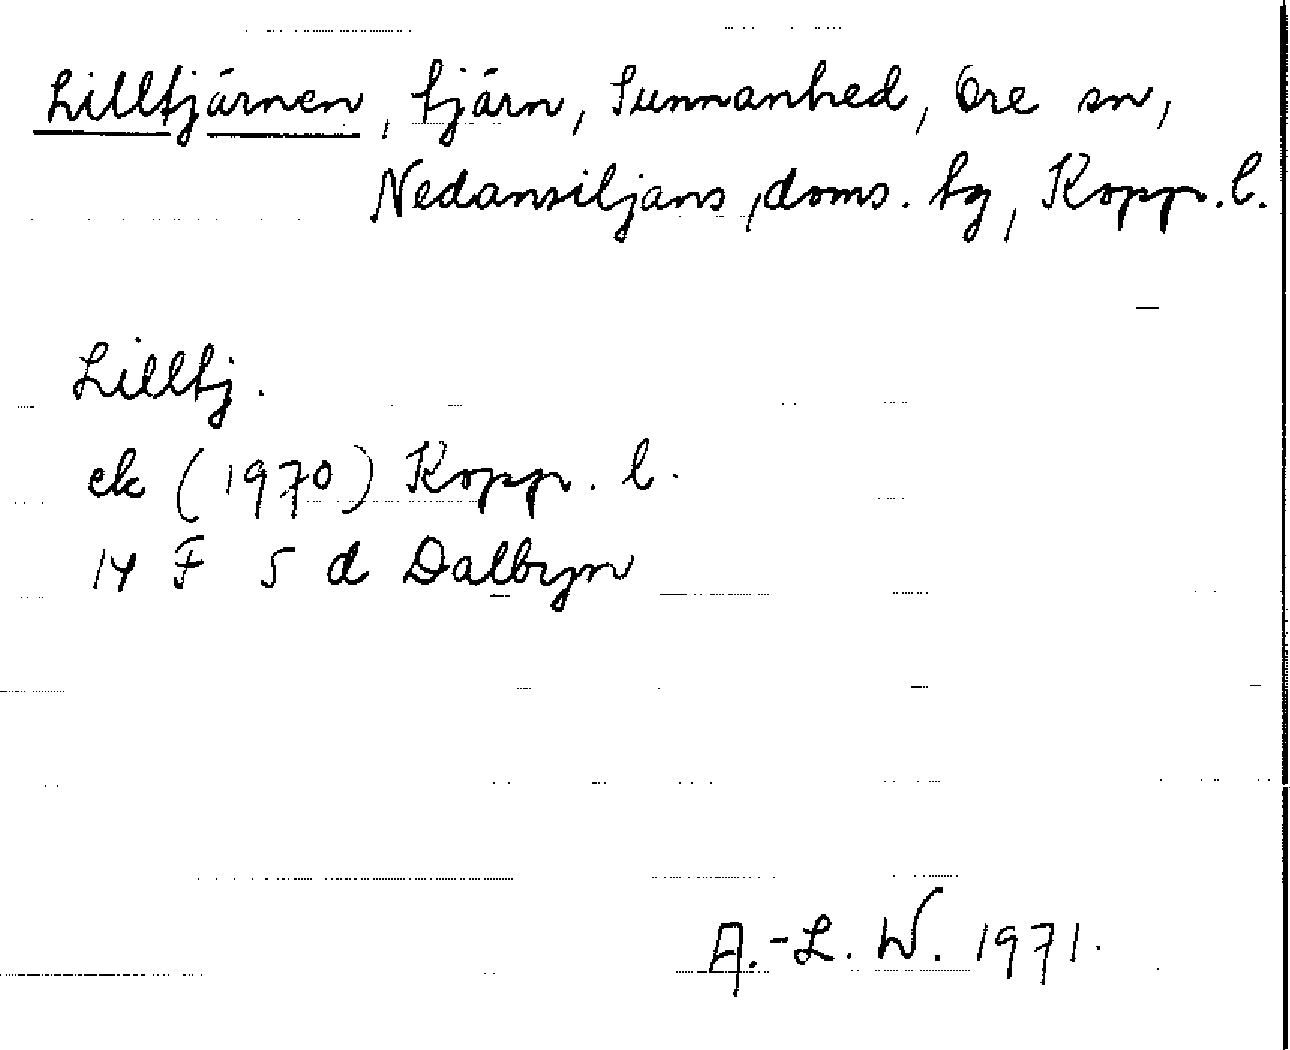 Lilltjärnen, tjärn, Sunnanhed, Ore sn,
Nedansiljans doms. tg, Kopp. l.
Lilltj.
ek (1970) Kopp. l.
14 F 5 d Dalbyn
A.-L. W. 1971.